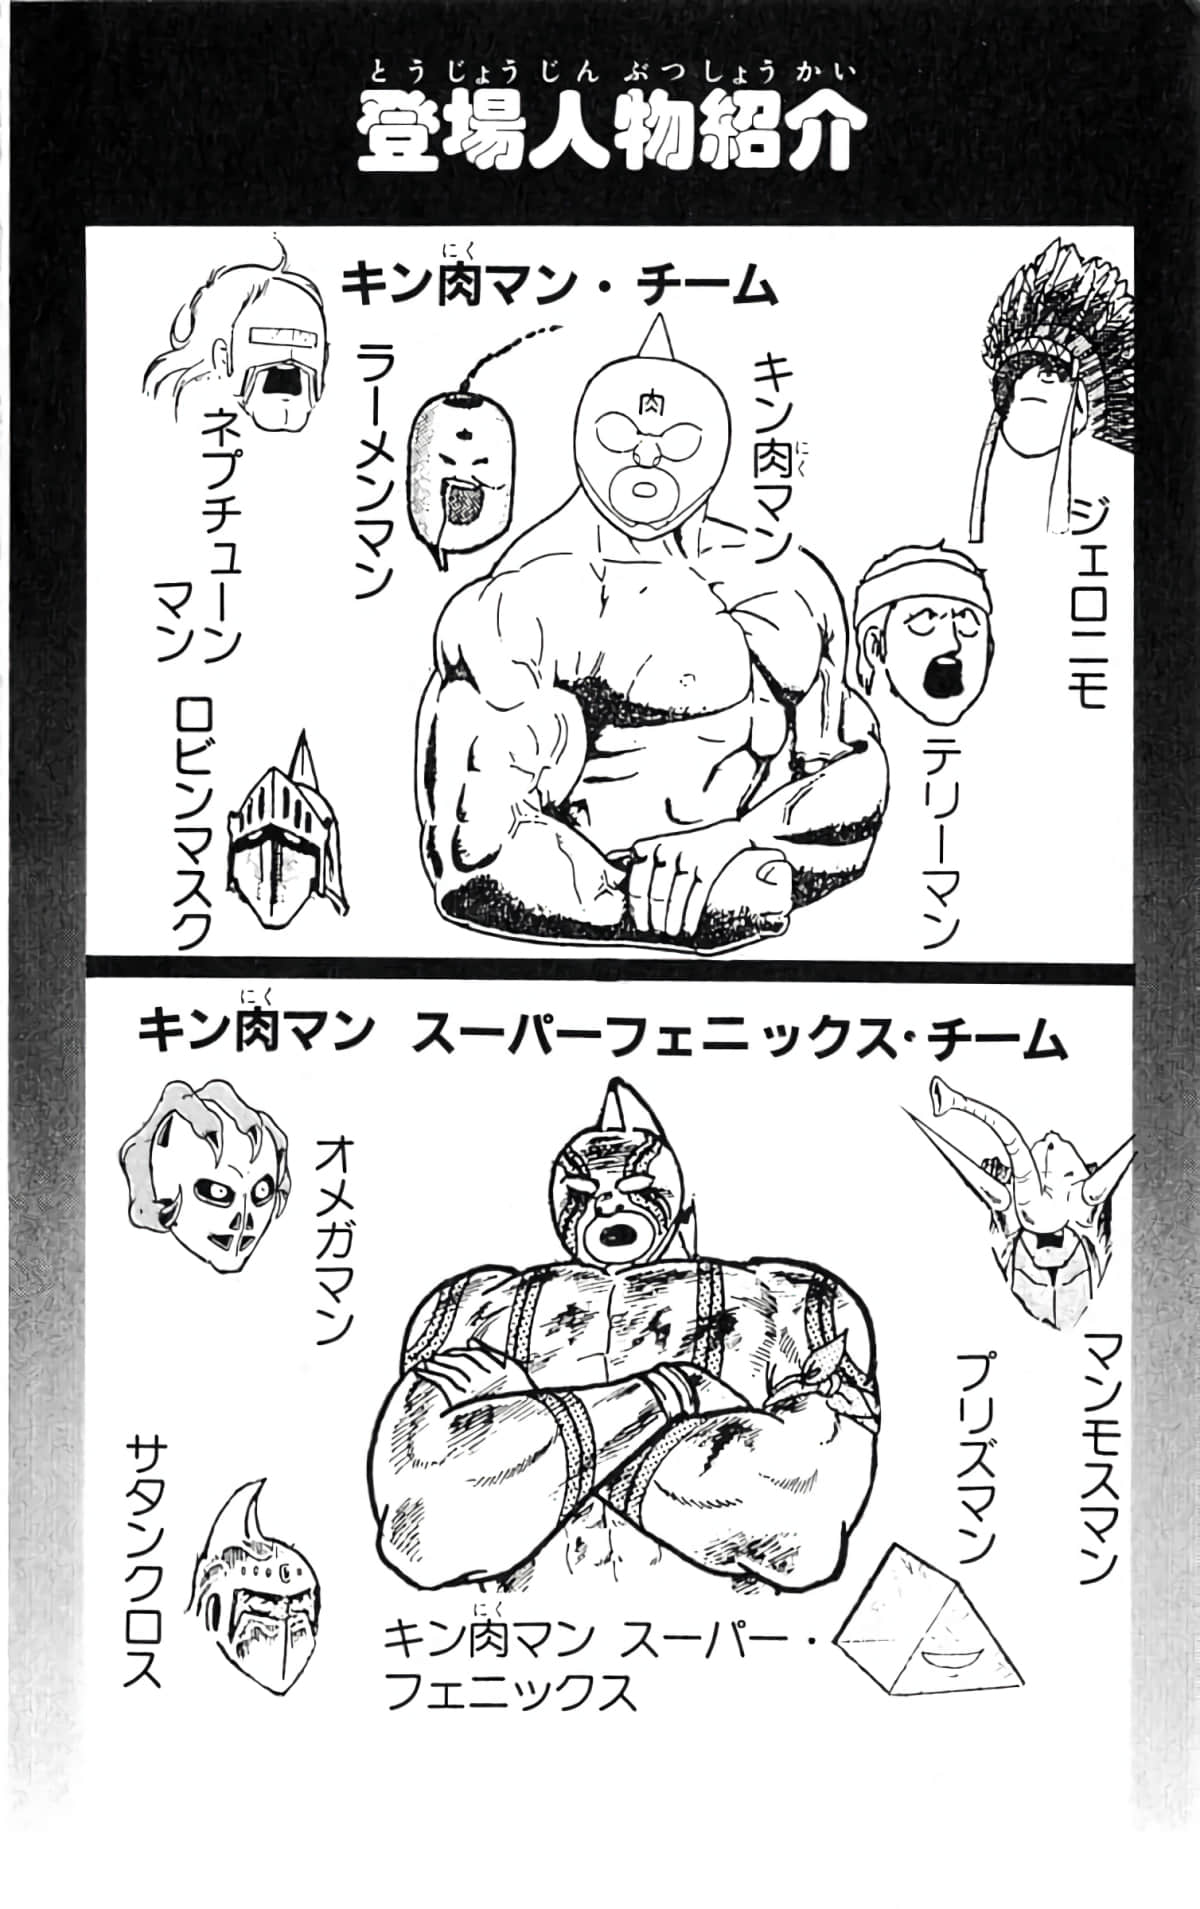 とうじょうじんぶつしょうかい
登場人物紹介
にく
キン肉マン・チーム
ジェロニモ
キン肉マン
にく
テリーマン
ラーメンマン
ネプチューン
マン
ロビンマスク
肉
にく
キン肉マン スーパーフェニックス・チーム
マンモスマン
プリズマン
オメガマン
サタンクロス
にく
キン肉マン スーパー・
フェニックス